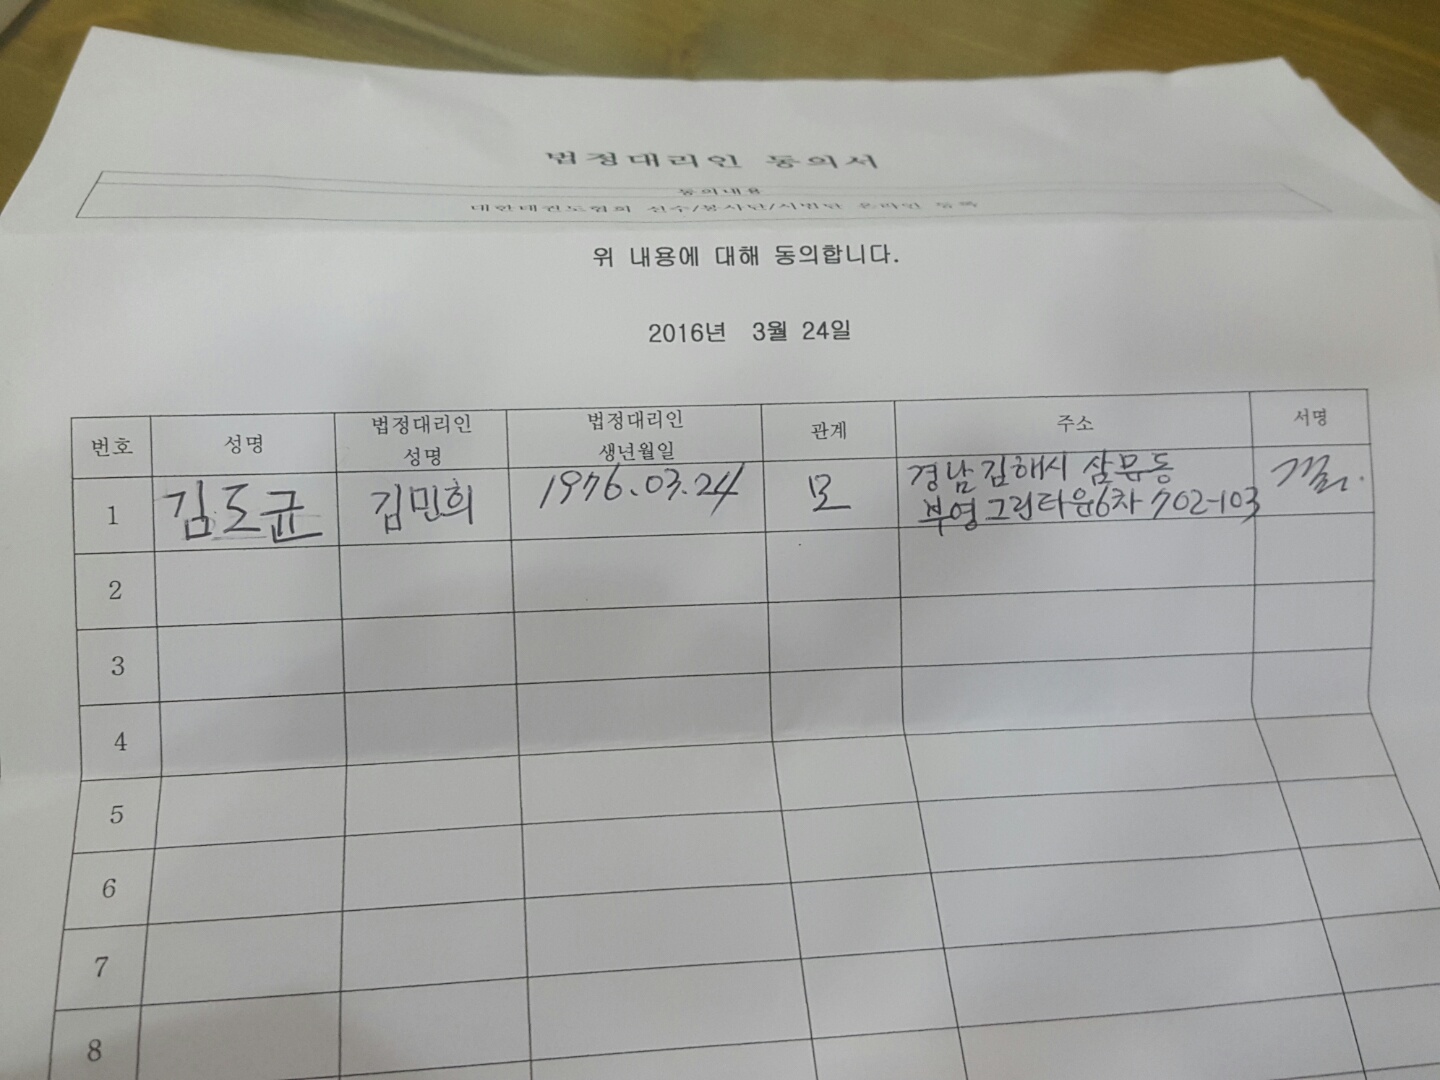 법정대리인 동의서
동의내용
대한태권도협회 선수/봉사단/시범단 온라인 등록
위 내용에 대해 동의합니다.
2016년 3월 24일
번호 성명 법정대리인 성명 법정대리인 생년월일 관계 주소 서명
1 김도균 김민희 1976.03.24 모 경남 김해시 삼문동
부영그린타운6차 702-103
2
3
4
5
6
7
8